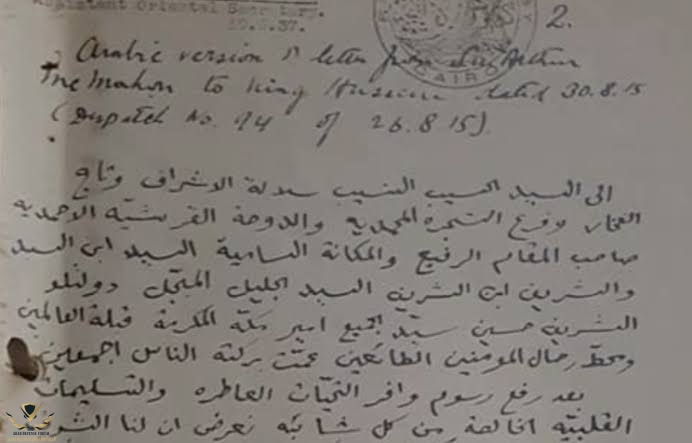 Assistant Oriental Secretary.
19.5.37.
CAIRO
2.
Arabic version of letter from Sir Arthur
McMahon to King Hussein dated 30.8.15
(Dispatch No. 94 of 26.8.15).
الى السيد الحسيب النسيب سلالة الاشراف وتاج
الفخار وفرع الشجرة المحمديه والدوحة القرشيّة الاحمديه
صاحب المقام الرفيع والمكانة السامية السيد ابن السيد
والشريف ابن الشريف السيد الجليل المبجّل دولتلو
الشريف حسين سيّد الجميع امير مكة المكرمة قبلة العالمين
ومحطّ رحال المومنين الطائعين عمّت بركته الناس اجمعين
بعد رفع رسوم وافر التحيّات العاطره والتسليمات
القلبيّة الخالصة من كل شائبة نعرض ان لنا